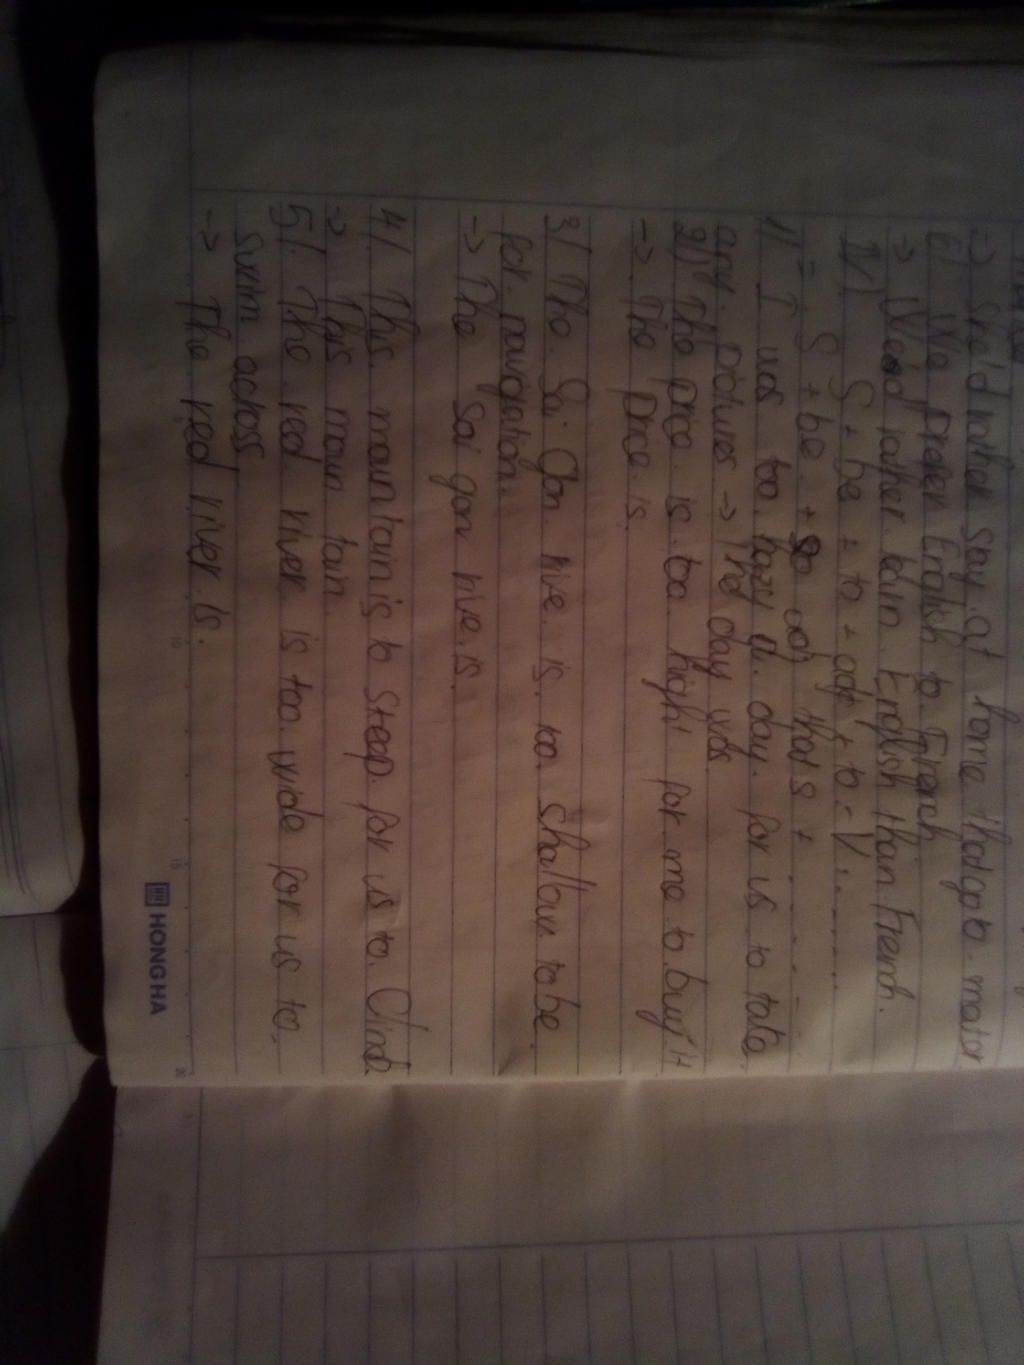 -> She'd rather Stay at home than go to
6/ We prefer English to French
-> We'd rather learn English than French.
IV/ S + be + to + adj + to - V ...
= S + be + so adj that S + ...
1/ I was too hazy a day for us to take
any pictures -> The day was
2/ The price is too high for me to buy it
-> The price is
3/ The Sai Gon rive is too shallow to be
for navigation.
-> The Sai gon rive is
4/ This mountain is to steep for us to Climb
-> This moun tain
5/ The red river is too wide for us to
swim across
-> The red river is.
HONG HA
10
15
20